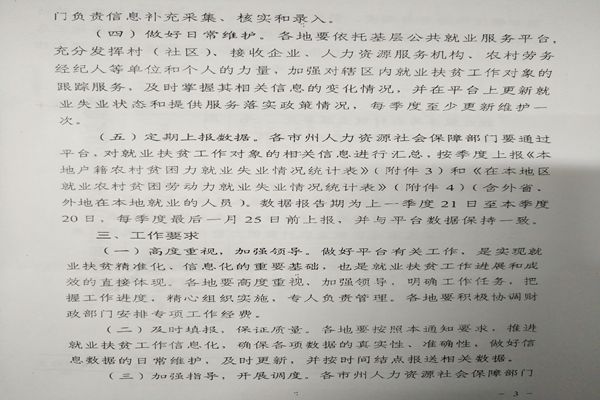 门负责信息补充采集、核实和录入。
（四）做好日常维护。各地要依托基层公共就业服务平台，
充分发挥村（社区）、接收企业、人力资源服务机构、农村劳务
经纪人等单位和个人的力量，加强对辖区内就业扶贫工作对象的
跟踪服务，及时掌握其相关信息的变化情况，并在平台上更新就
业失业状态和提供服务落实政策情况，每季度至少更新维护一
次。
（五）定期上报数据。各市州人力资源社会保障部门要通过
平台，对就业扶贫工作对象的相关信息进行汇总，按季度上报《本
地户籍农村贫困力就业失业情况统计表》（附件3）和《在本地区
就业农村贫困劳动力就业失业情况统计表》（附件4）（含外省、
外地在本地就业的人员）。数据报告期为上一季度21日至本季度
20日，每季度最后一月25日前上报，并与平台数据保持一致。
三、工作要求
（一）高度重视，加强领导。做好平台有关工作，是实现就
业扶贫精准化、信息化的重要基础，也是就业扶贫工作进展和成
效的直接体现。各地要高度重视、加强领导，明确工作任务，把
握工作进度，精心组织实施，专人负责管理。各地要积极协调财
政部门安排专项工作经费。
（二）及时填报，保证质量。各地要按照本通知要求，推进
就业扶贫工作信息化，确保各项数据的真实性、准确性，做好信
息数据的日常维护，及时更新，并按时间结点报送相关数据。
（三）加强指导，开展调度。各市州人力资源社会保障部门
- 3 -